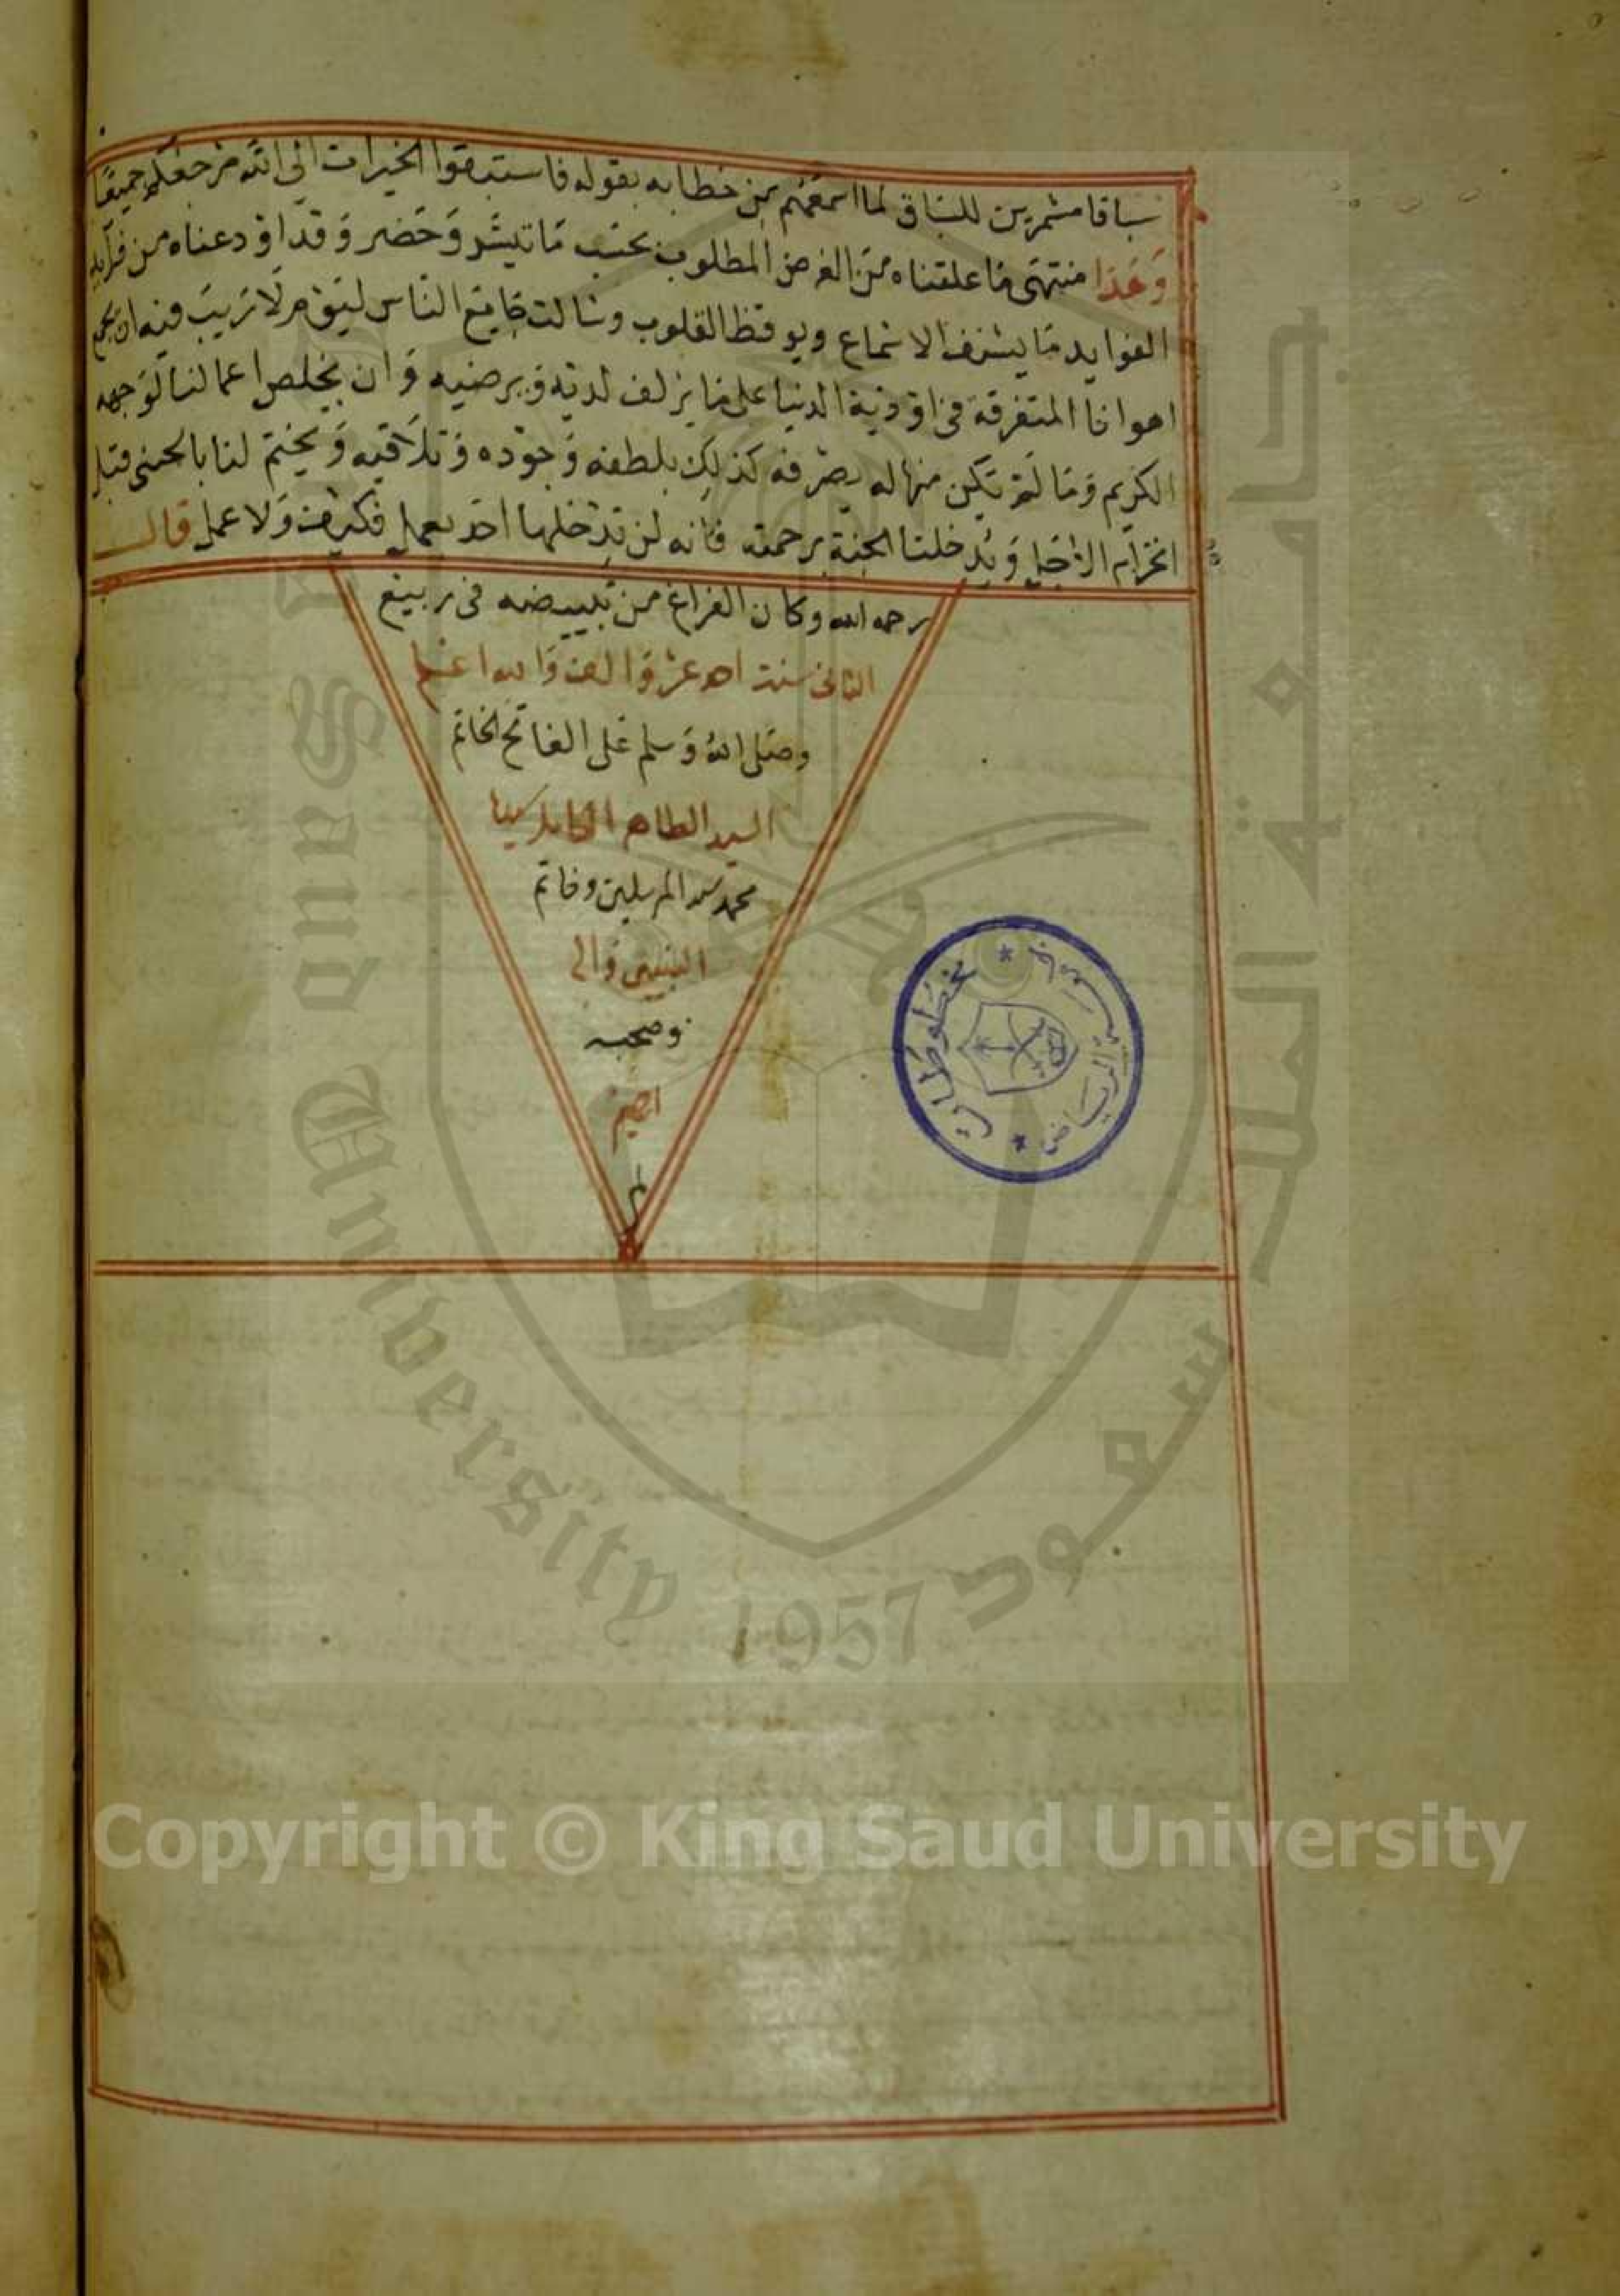 سباقا مشمرين للسباق لما اسمعهم من خطابه بقوله فاستبقوا الخيرات الى الله مرجعكم جميعا
وهذا منتهى ما علقناه من الغرض المطلوب بحسب ما تيسر وحضر وقد اودعناه من فرايد
الفوايد ما يشنف الاسماع ويوقظ القلوب وسالت جامع الناس ليوم لا ريب فيه ان يجمع
اهوانا المتفرقة في اودية الدنيا على ما يزلف لديه ويرضيه وان يخلص اعمالنا لوجهه
الكريم وما لم يكن منها له يصرفه كذلك بلطفه وجوده وتلاقيه ويختم لنا بالحسنى قبل
انخرام الاجل ويدخلنا الجنة برحمته فانه لن يدخلها احد بعمل فكيف ولا عمل قال
رحمه الله وكان الفراغ من تبييضه في ربيع
الثاني سنة احد عشر والف والله اعلم
وصلى الله وسلم على الفاتح الخاتم
السيد الطاهر الكامل سيدنا
محمد سيد المرسلين وخاتم
النبيين والى
وصحبه
اجمعين
م
مخطوطات
الرياض
جامعة الملك سعود
King Saud University 1957
Copyright © King Saud University